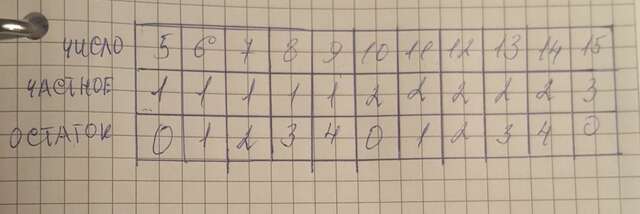 ЧИСЛО 5 6 7 8 9 10 11 12 13 14 15
ЧАСТНОЕ 1 1 1 1 1 2 2 2 2 2 3
ОСТАТОК 0 1 2 3 4 0 1 2 3 4 0